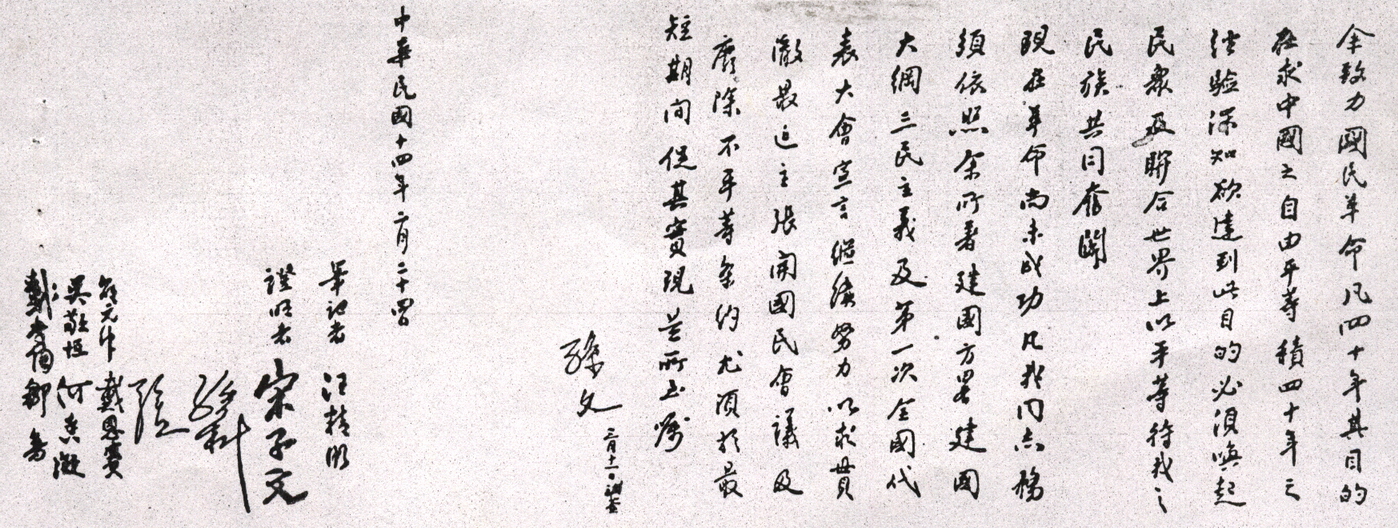 余致力國民革命凡四十年其目的
在求中國之自由平等積四十年之
經驗深知欲達到此目的必須喚起
民衆及聯合世界上以平等待我之
民族共同奮鬪
現在革命尚未成功凡我同志務
須依照余所著建國方畧建國
大綱三民主義及第一次全國代
表大會宣言繼續努力以求貫
澈最近主張開國民會議及
廢除不平等条約尤須於最
短期間促其實現是所至囑
孫文 三月十一日補簽
中華民國十四年二月二十四日
筆記者 汪精衛
證明者 宋子文
孫科
孔
邵元冲 戴恩賽
吳敬恒 何香凝
戴季陶 鄒魯